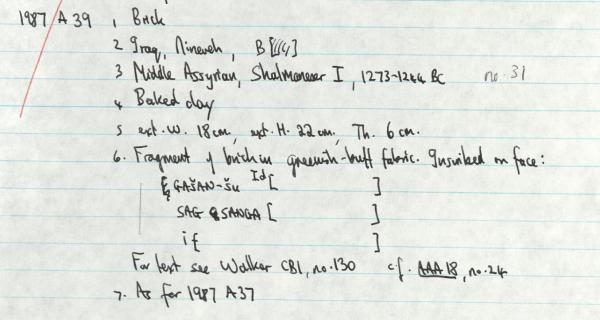 1987 A 39 , Brick
2 Iraq, Nineveh, B
3 Middle Assyrian, Shalmaneser I, 1273-1244 BC no. 31
4 Baked clay
5 ext. W. 18 cm, ext. H. 22 cm, Th. 6 cm.
6. Fragment of brick in greenish-buff fabric. Inscribed on face:
GAŠAN-šu Id [ ]
SAG SANGA [ ]
i [ ]
For text see Walker CBI, no. 130 c.f. AAA 18, no. 24
7. As for 1987 A 37